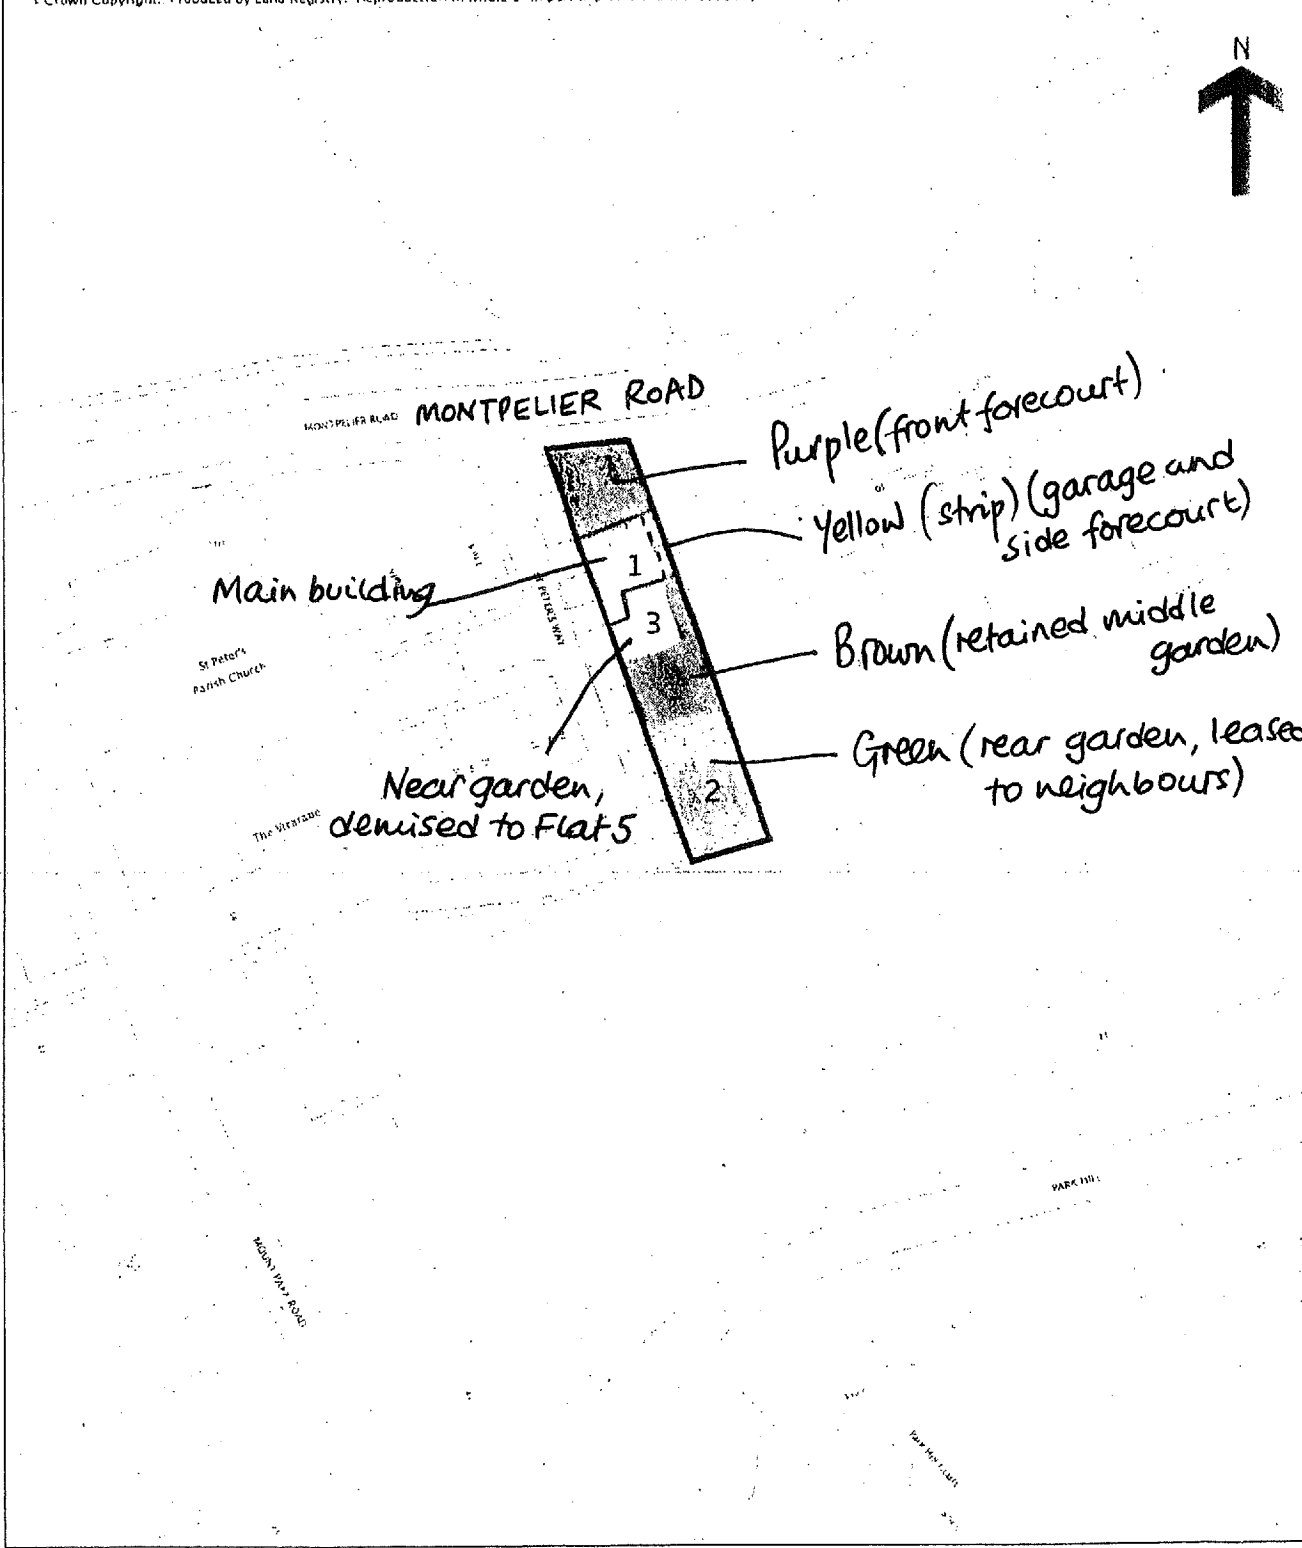 N
MONTPELIER ROAD MONTPELIER ROAD
Purple (front forecourt)
Yellow (strip) (garage and
side forecourt)
Main building
1
ST PETER'S WAY
3
Brown (retained middle
garden)
St Peter's
Parish Church
Green (rear garden, leased
to neighbours)
2
Near garden,
demised to Flat 5
The Vicarage
PARK HILL
MOUNT PARK ROAD
Park Hill Court